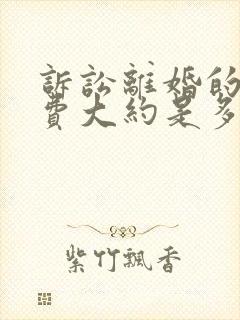 訴訟離婚的
費大約是多
紫竹飄香